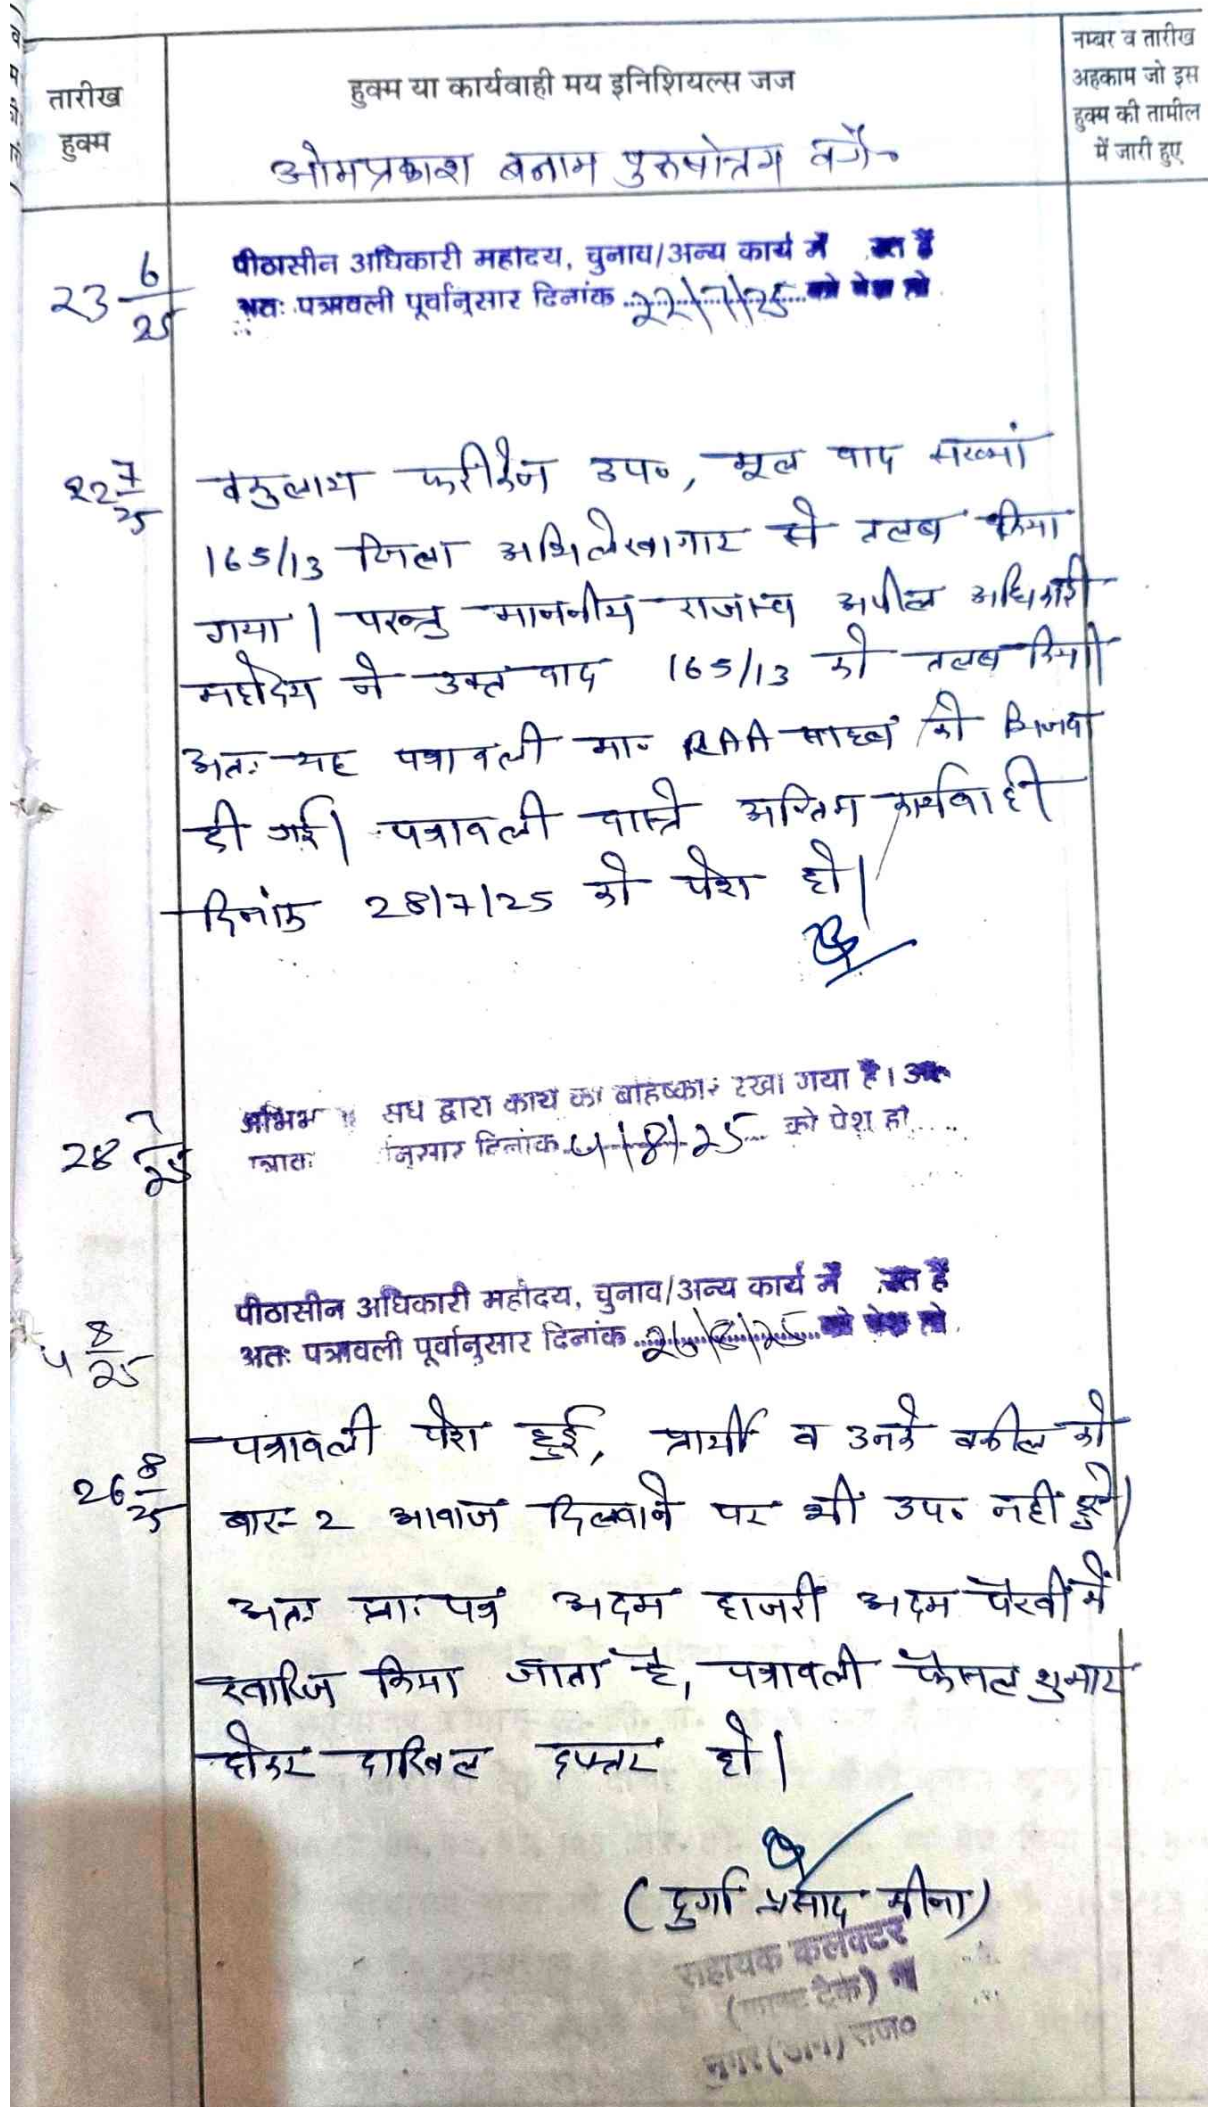 तारीख
हुक्म
हुक्म या कार्यवाही मय इनिशियल्स जज
नम्बर व तारीख
अहकाम जो इस
हुक्म की तामील
में जारी हुए
ओमप्रकाश बनाम पुरुषोत्तम वगै०
23 6/25
पीठासीन अधिकारी महोदय, चुनाव/अन्य कार्य में रत हैं
अतः पत्रावली पूर्वानुसार दिनांक 22/7/25 को पेश हो
22 7/25
वकुलाय फरीकैन उप०, मूल वाद संख्यां
165/13 जिला अभिलेखागार से तलब किया
गया। परन्तु माननीय राजस्व अपील अधिकारी
महोदय ने उक्त वाद 165/13 को तलब किया
अतः यह पत्रावली मा० RAA साहब को भिजवा
दी गई। पत्रावली वास्ते अन्तिम कार्यवाही
दिनांक 28/7/25 को पेश हो।
28 7/25
संघ द्वारा कार्य का बहिष्कार रखा गया है।
नुसार दिनांक 4/8/25 को पेश हो
4 8/25
पीठासीन अधिकारी महोदय, चुनाव/अन्य कार्य में रत हैं
अतः पत्रावली पूर्वानुसार दिनांक 26/8/25 को पेश हो
26 8/25
पत्रावली पेश हुई, प्रार्थी व उनके वकील को
बार-2 आवाज दिलवाने पर भी उप० नहीं हुये।
अतः प्रा. पत्र अदम हाजरी अदम पैरवी में
खारिज किया जाता है, पत्रावली फैसल शुमार
होकर दाखिल दफ्तर हो।
(दुर्गा प्रसाद मीना)
सहायक कलक्टर
नगर राज०